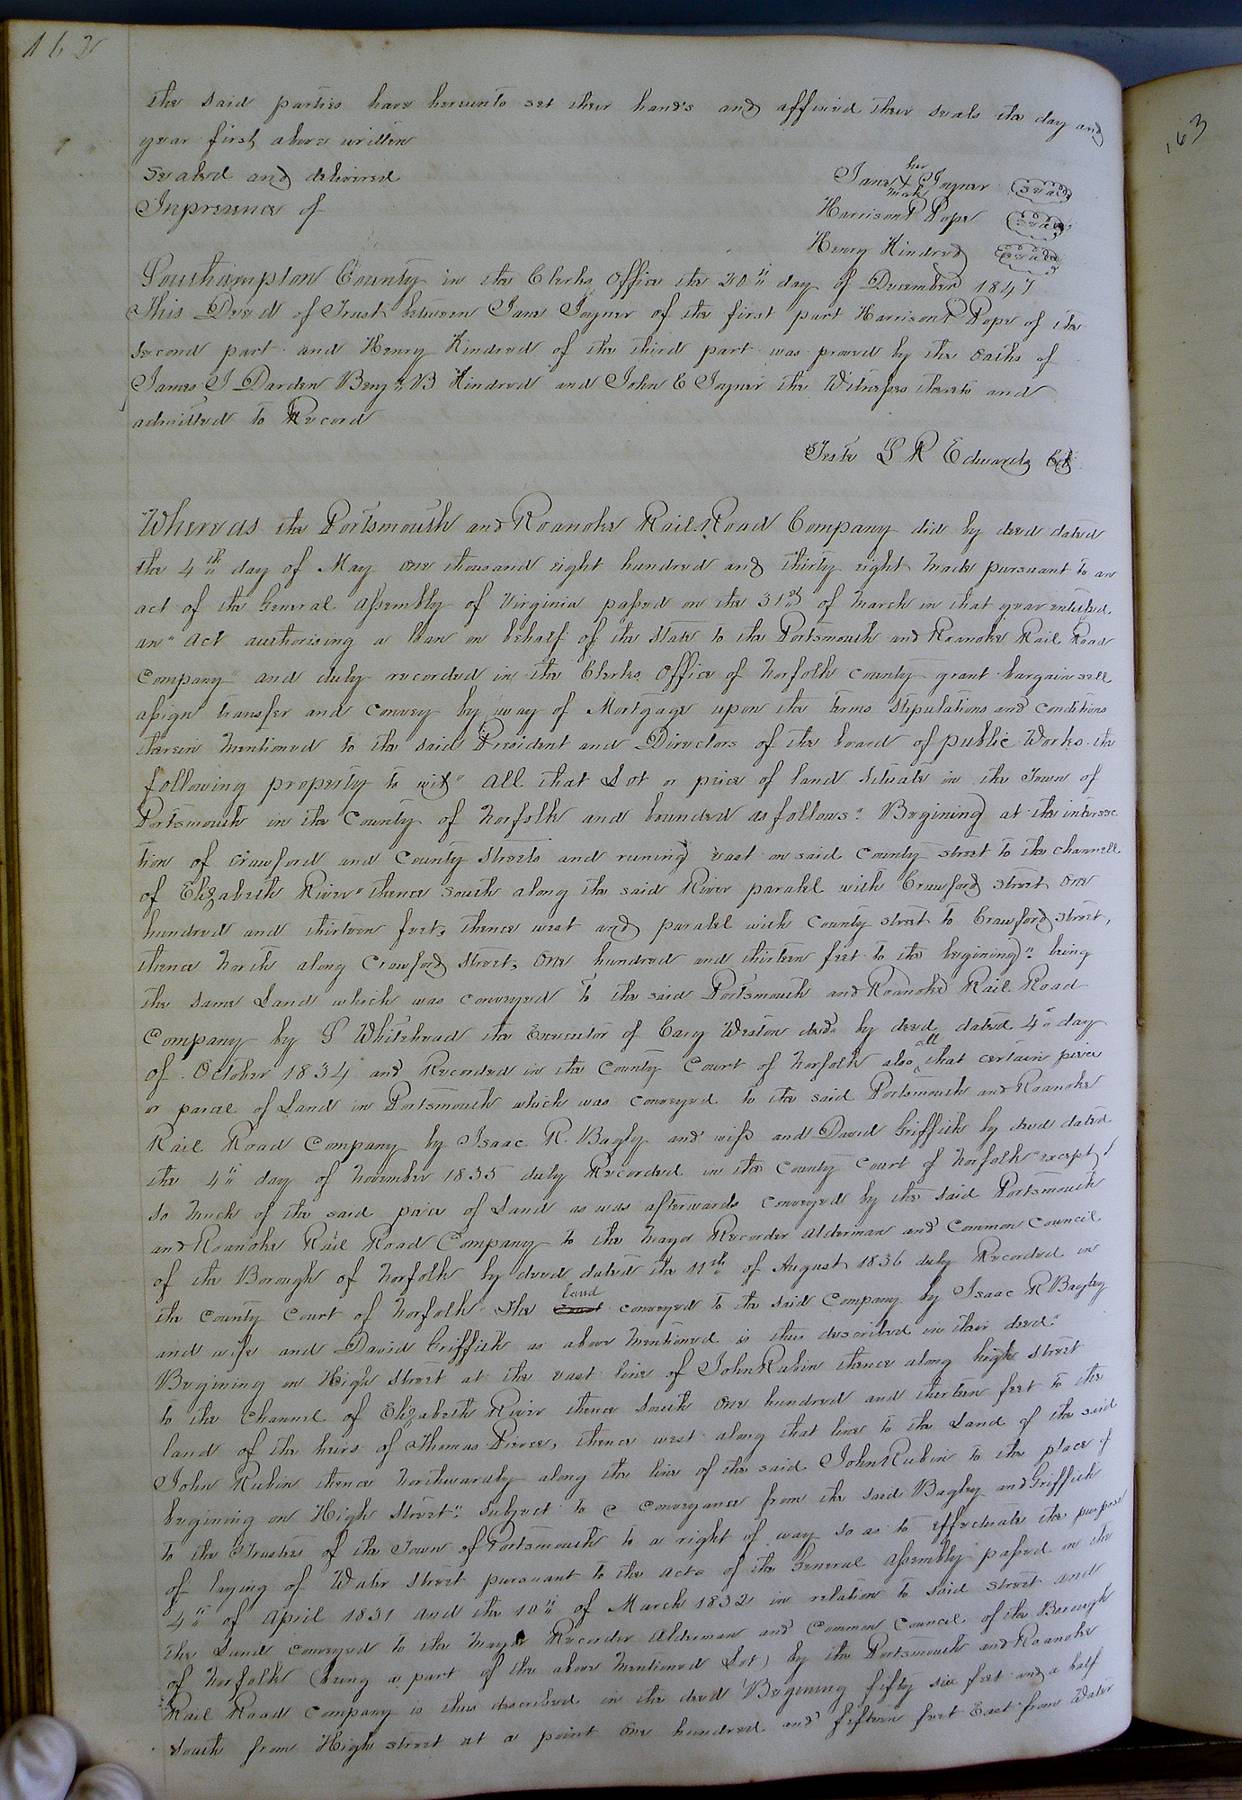 162
the said parties have hereunto set their hands and affixed their seals the day and
year first above written
Sealed and delivered
In presence of
her
Jane X Joyner (seal)
mark
Harrison P Pope (seal)
Henry Kindred (seal)
Southampton County in the Clerks Office the 20th day of December 1847
This Deed of Trust between Jane Joyner of the first part Harrison P Pope of the
second part and Henry Kindred of the third part was proved by the oaths of
James J Darden Benjn B Kindred and John E Joyner the Witnesses thereto and
admitted to Record
Teste L R Edwards Clk
Whereas the Portsmouth and Roanoke Rail Road Company did by deed dated
the 4th day of May one thousand eight hundred and thirty eight made pursuant to an
act of the General Assembly of Virginia passed on the 31st of March in that year entitled
an "act authorising a loan on behalf of the State to the Portsmouth and Roanoke Rail Road
Company and duly recorded in the Clerks Office of Norfolk county grant bargain sell
assign transfer and convey by way of Mortgage upon the terms stipulations and conditions
therein mentioned to the said President and Directors of the board of public Works the
following property to wit" all that Lot or peice of land situate in the Town of
Portsmouth in the County of Norfolk and bounded as follows: Begining at the intersec
tion of Crawford and County Streets and runing east on said County street to the channell
of Elizabeth River" thence south along the said River paralel with Crawford street one
hundred and thirteen feet, thence west and paralel with County street to Crawford street,
thence North along Crawford Street, one hundred and thirteen feet to the begining": being
the same Land which was conveyed to the said Portsmouth and Roanoke Rail Road
Company by S Whitehead the Executor of Cary Weston decd. by deed dated 4th day
of October 1834 and Recorded in the County Court of Norfolk also all that certain peice
or parcel of Land in Portsmouth which was conveyed to the said Portsmouth and Roanoke
Rail Road Company by Isaac R. Bagley and wife and David Griffith by deed dated
the 4th day of November 1835 duly Recorded in the County Court of Norfolk except
so much of the said peice of Land as was afterwards conveyed by the said Portsmouth
and Roanoke Rail Road Company to the Mayor Recorder Alderman and Common Council
of the Borough of Norfolk by deed dated the 11th of August 1836 duly Recorded in
the County Court of Norfolk The land conveyed to the said Company by Isaac R Bagley
and wife and David Griffith as above mentioned is thus described in their deed:"
Begining on High Street at the east line of John Rubin thence along high street
to the Channel of Elizabeth River thence South one hundred and thirteen feet to the
land of the heirs of Thomas Pierce, thence west along that line to the Land of the said
John Rubin thence Northwardly along the line of the said John Rubin to the place of
begining on High Street": subject to a conveyance from the said Bagley and Griffith
to the Trustees of the Town of Portsmouth to a right of way so as to effectuate the purpose
of laying of Water Street pursuant to the acts of the General Assembly passed on the
4th of April 1831 and the 10th of March 1832 in relation to said street and
the Land conveyed to the Mayor Recorder Alderman and Common Council of the Borough
of Norfolk (being a part of the above mentioned Lot) by the Portsmouth and Roanoke
Rail Road Company is thus described in the deed "Begining fifty six feet and a half
South from High street at a point one hundred and fifteen feet East from Water
163